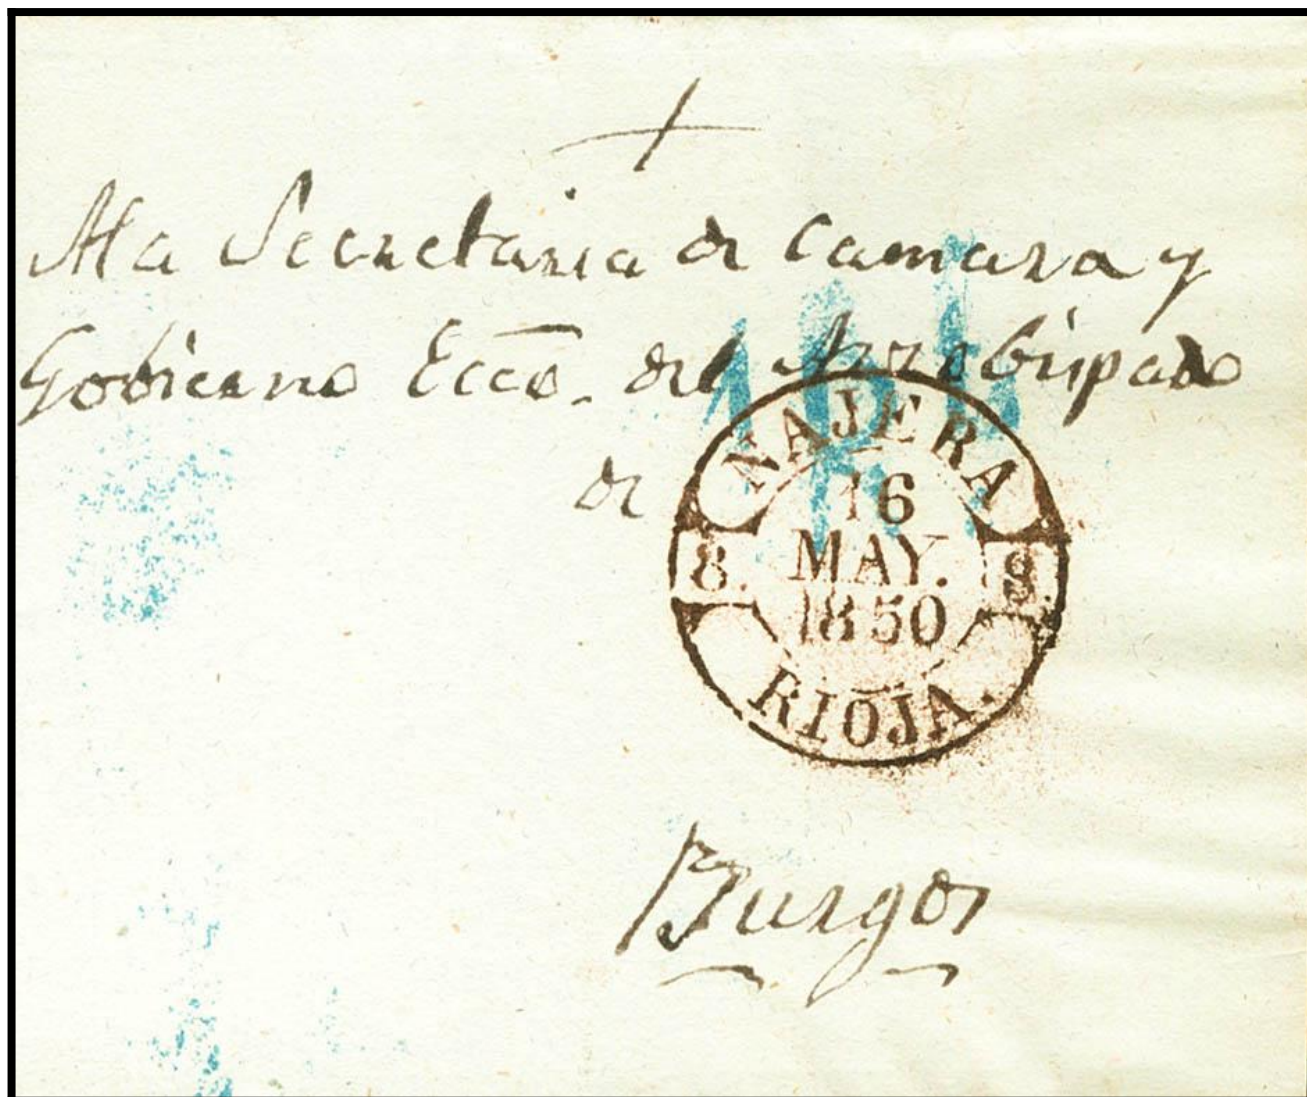 A la Secretaria de Camara y
Gobierno Ecco. del Arzobispado
de
NAJERA
16
MAY.
8. 8.
1850
RIOJA.
Burgos